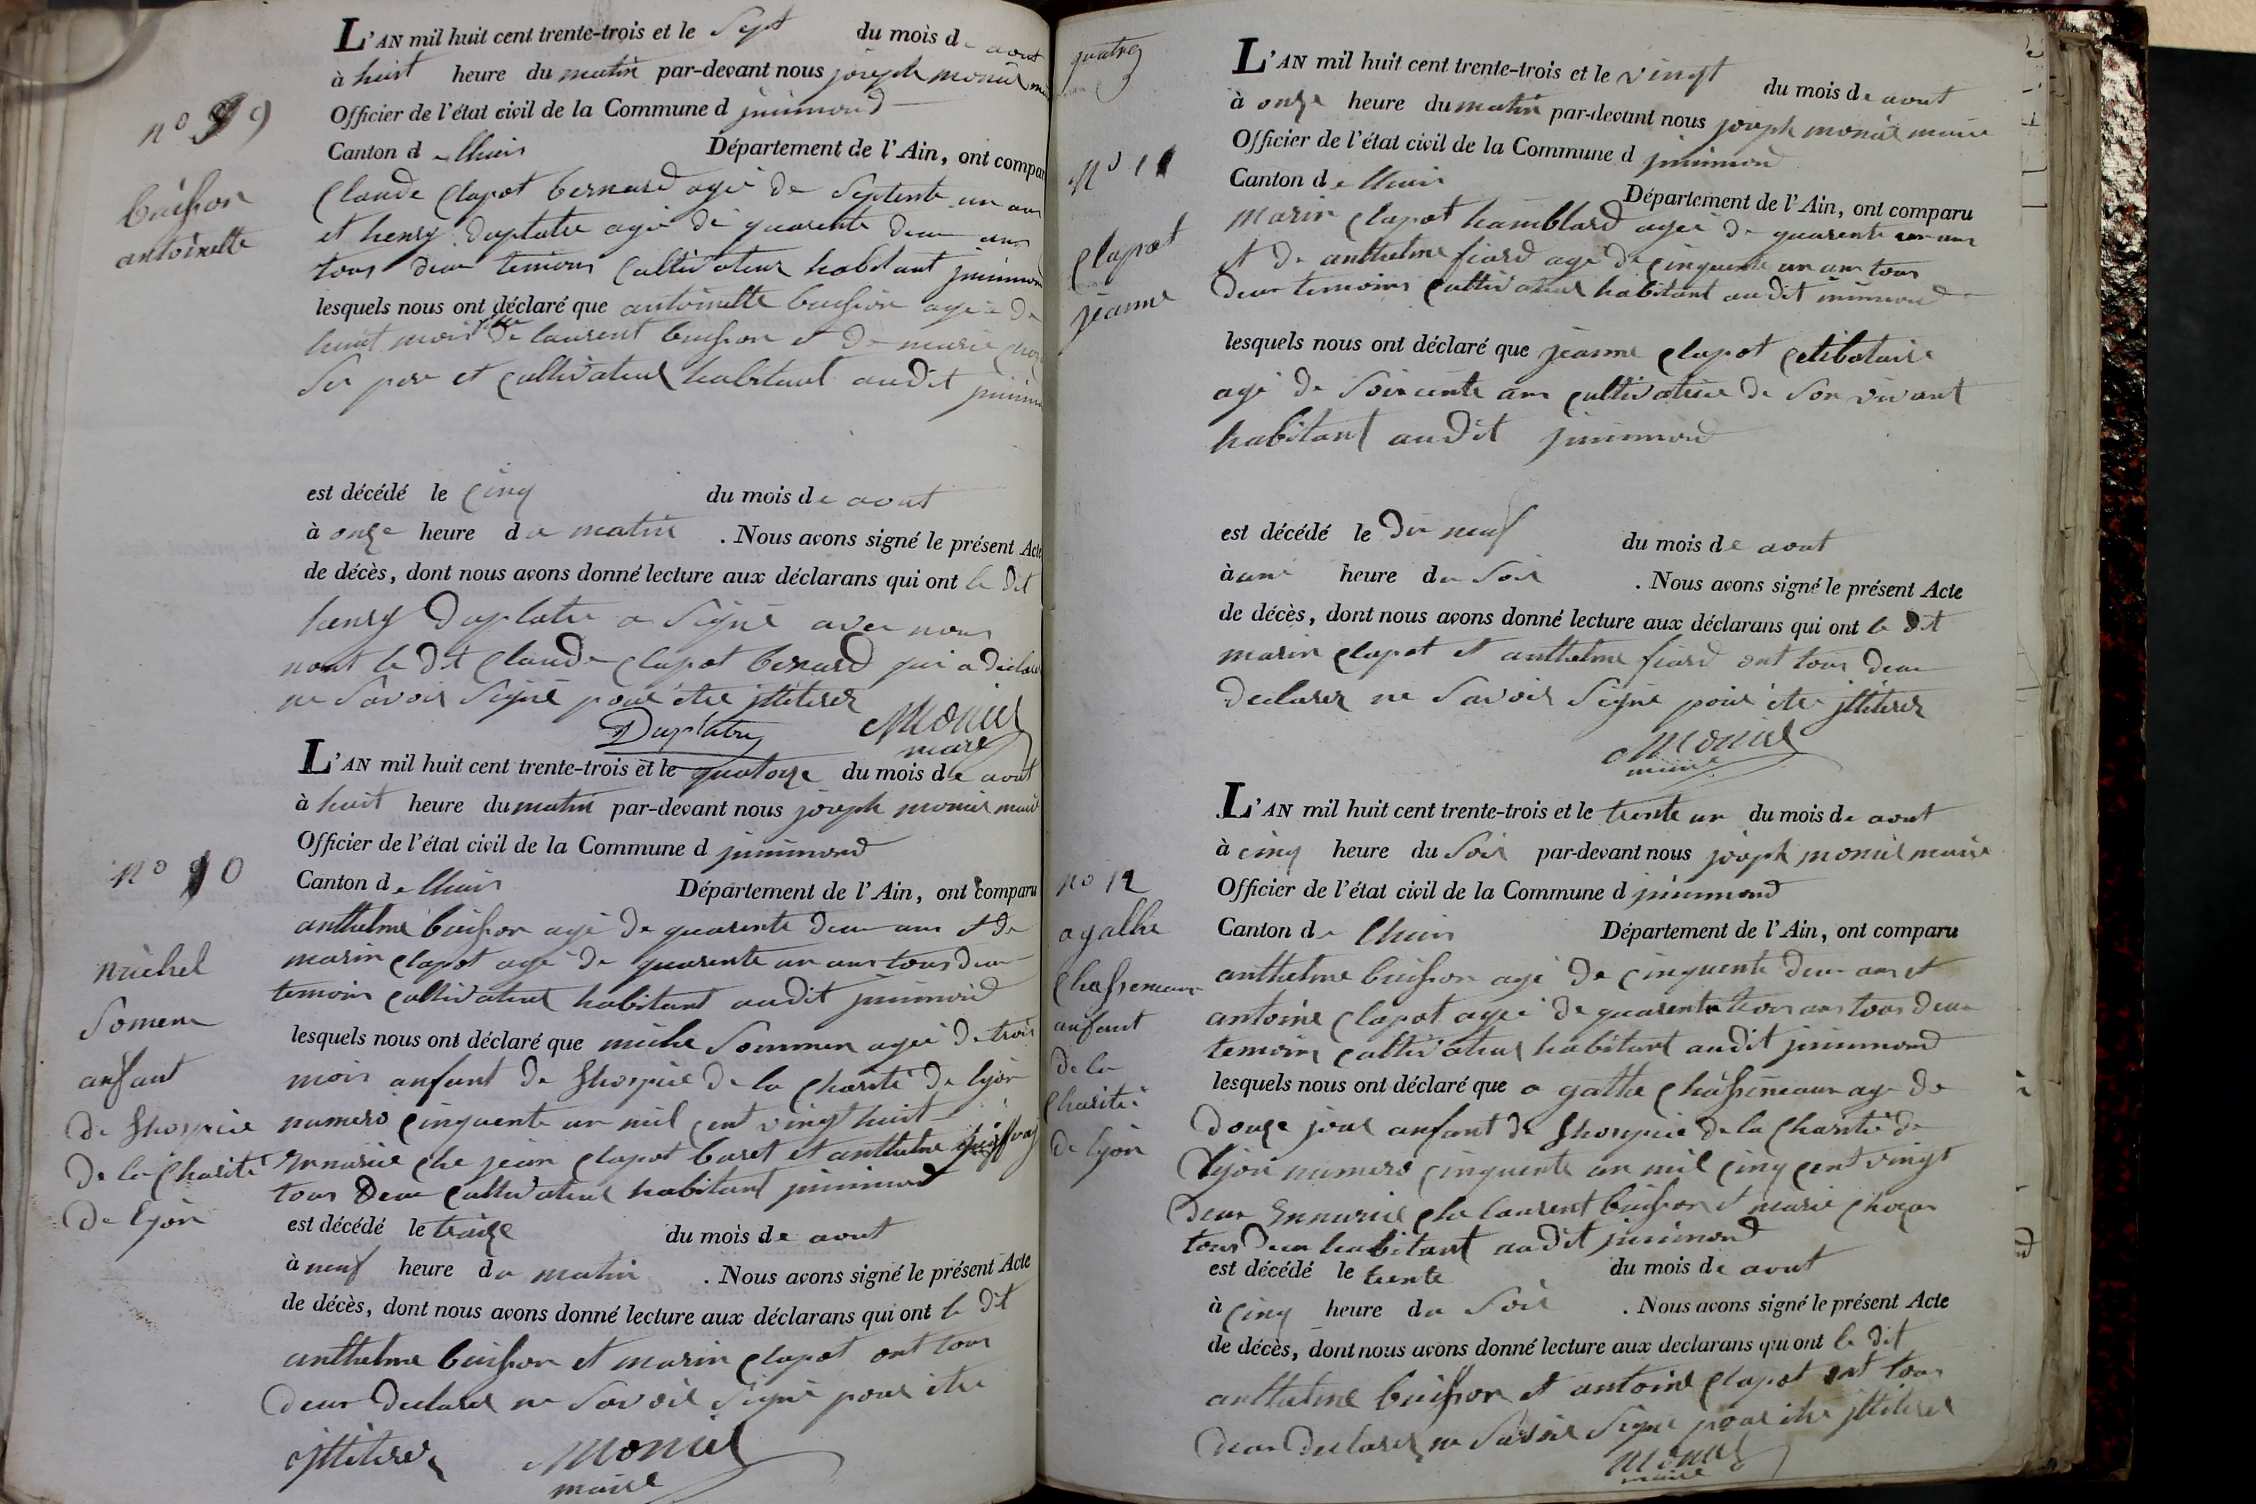 L'AN mil huit cent trente-trois et le Sept du mois de aout
à huit heure du matin par-devant nous joseph monier
Officier de l'état civil de la Commune d jnimond
n° 9
Canton de lhuis Département de l'Ain, ont compar
Claude Clapot bernard agé de Septente un ans
buisson
et henry duplatre agé de quarente deux ans
antoinette
tous deux temoins Cultivateur habitant jnimond
lesquels nous ont déclaré que antoinette buisson agée de
huit mois fille de laurent buisson et de marie
Ses pere et Cultivateur habitant audit jnimon
est décédé le Cinq du mois de aout
à onze heure du matin . Nous avons signé le présent Acte
de décès, dont nous avons donné lecture aux déclarans qui ont le dit
henry Duplatre a Signé avec nous
nont le dit Claude Clapot bernard qui a declaré
ne Savoir Signé pour etre jlliterer
Duplatre Monier
maire
L'AN mil huit cent trente-trois et le quatorze du mois de aout
à huit heure du matin par-devant nous joseph monier maire
Officier de l'état civil de la Commune d jnimond
n° 10
Canton de lhuis Département de l'Ain, ont comparu
anthelme buisson agé de quarente deux ans et de
michel
marin Clapot agé de quarente un ans tous deux
Somen
temoins Cultivateur habitant audit jnimond
lesquels nous ont déclaré que miche Sommen agée de trois
anfant
mois anfant de Lhospice de la Charité de lyon
de Lhospice
numero Cinquente un mil Cent vingt huit
de la Charité
Ennurice che jean Clapot buret et anthelme
tous deux Cultivateur habitant jnimond
de lyon
est décédé le traize du mois de aout
à neuf heure du matin . Nous avons signé le présent Acte
de décès, dont nous avons donné lecture aux déclarans qui ont le dit
anthelme buisson et marin Clapot ont tous
deux declarer ne Savoir Signé pour etre
jlliterer Monier
maire
quatre
L'AN mil huit cent trente-trois et le vingt du mois de aout
à onze heure du matin par-devant nous joseph monier maire
Officier de l'état civil de la Commune d jnimond
n° 11
Canton de lhuis Département de l'Ain, ont comparu
marin Clapot hamblard agée de quarente un ans
Clapot
et de anthelme fiard agé de Cinquente un ans tous
jeanne
deux temoins Cultivateur habitant audit jnimond
lesquels nous ont déclaré que jeanne Clapot Celibataire
agé de Soixcente ans Cultivatrice de Son vivant
habitant audit jnimond
est décédé le dix neuf du mois de aout
à une heure du Soir . Nous avons signé le présent Acte
de décès, dont nous avons donné lecture aux déclarans qui ont le dit
marin Clapot et anthelme fiard ont tous deux
declarer ne Savoir Signé pour etre jlliterer
Monier
maire
L'AN mil huit cent trente-trois et le trente un du mois de aout
à Cinq heure du Soir par-devant nous joseph monier maire
n° 12
Officier de l'état civil de la Commune d jnimond
agathe
Canton de lhuis Département de l'Ain, ont comparu
Chassineaux
anthelme buisson agé de Cinquente deux ans et
anfant
antoine Clapot agée de quarente trois ans tous deux
de la
temoins Cultivateur habitant audit jnimond
Charité
lesquels nous ont déclaré que agathe Chassineaux age de
de lyon
douze jour anfant de Lhospice de la Charité de
lyon numero Cinquente un mil Cinq Cent vingt
deux Ennurice che laurent buisson et marie
tous deux habitant audit jnimond
est décédé le trente du mois de aout
à Cinq heure du Soir . Nous avons signé le présent Acte
de décès, dont nous avons donné lecture aux declarans qui ont le dit
anthelme buisson et antoine Clapot ont tous
deux declarer ne Savoir Signe pour etre jlliterer
Monier
maire